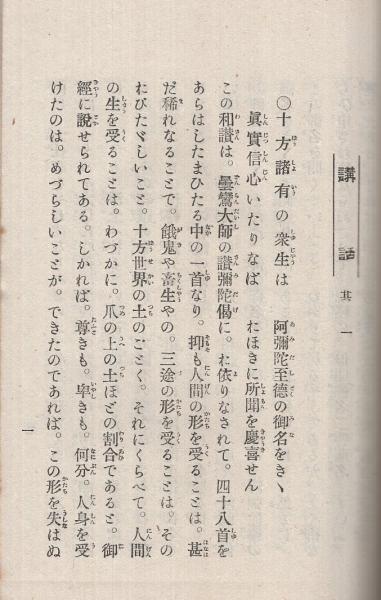 講話 其一
〇十方諸有の衆生は 阿彌陀至德の御名をきゝ
眞實信心いたりなば たほきに所聞を慶喜せん
この和讃は。曇鸞大師の讃彌陀偈に。た依りなされて。四十八首を
あらはしたまひたる中の一首なり。抑も人間の形を受ることは。甚
だ稀れなることで。餓鬼や畜生やの。三途の形を受ることは。その
たびたゞしいこと。十方世界の土のごとく。それにくらべて。人間
の生を受ることは。わづかに。爪の上の土ほどの割合であると。御
經に說せられてある。しかれば。尊きも。卑きも。何分。人身を受
けたのは。めづらしいことが。できたのであれば。この形を失はぬ
一